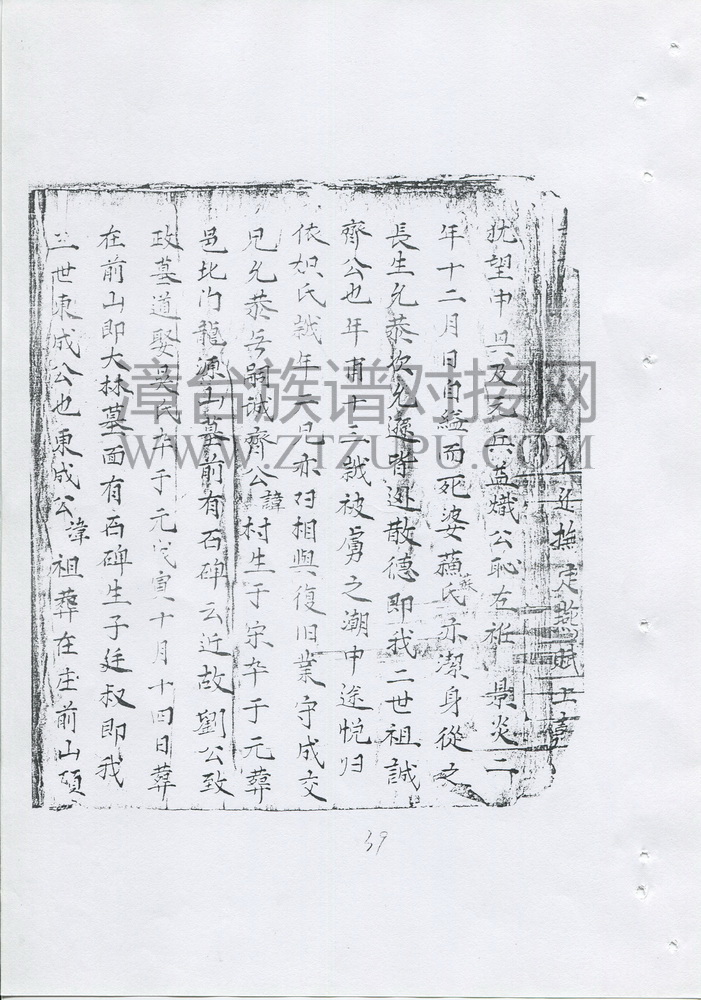 撫定燕
犹望中興及元兵孟熾公恥左袵景炎二
年十二月日自縊而死婆蘓氏亦潔身從之
蘇
長生允恭次允遜時逊散德即我二世祖誠
齊公也年有十三䟦被虜之潮中途悦归
依奶氏越年二兄亦对相與復旧業守成交
兄允恭乏嗣誠齊公諱村生于宋卒于元葬
邑北门龍源山墓前有石碑云近故劉公致
政墓道娶吴氏卒于元戊寅十月十四日葬
在前山即大林墓面有石碑生子廷叔即我
三世東成公也東成公諱祖葬在庄前山頭
章台族谱对接网
WWW.ZTZUPU.COM
39